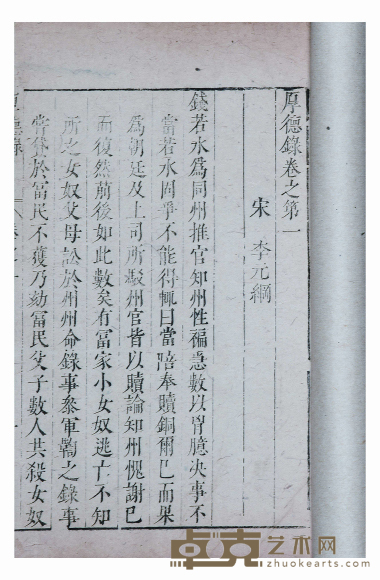 厚德錄卷之第一
宋 李元綱
錢若水為同州推官知州性褊急數以胷臆决事不
當若水固爭不能得輒曰當陪奉贖銅爾已而果
為朝廷及上司所駮州官皆以贖論知州愧謝已
而復然前後如此數矣有冨家小女奴逃亡不知
所之女奴父母訟於州州命錄事參軍鞫之錄事
嘗貸於冨民不獲乃劾冨民父子數人共殺女奴
卓克艺术网
www.zhuokearts.com